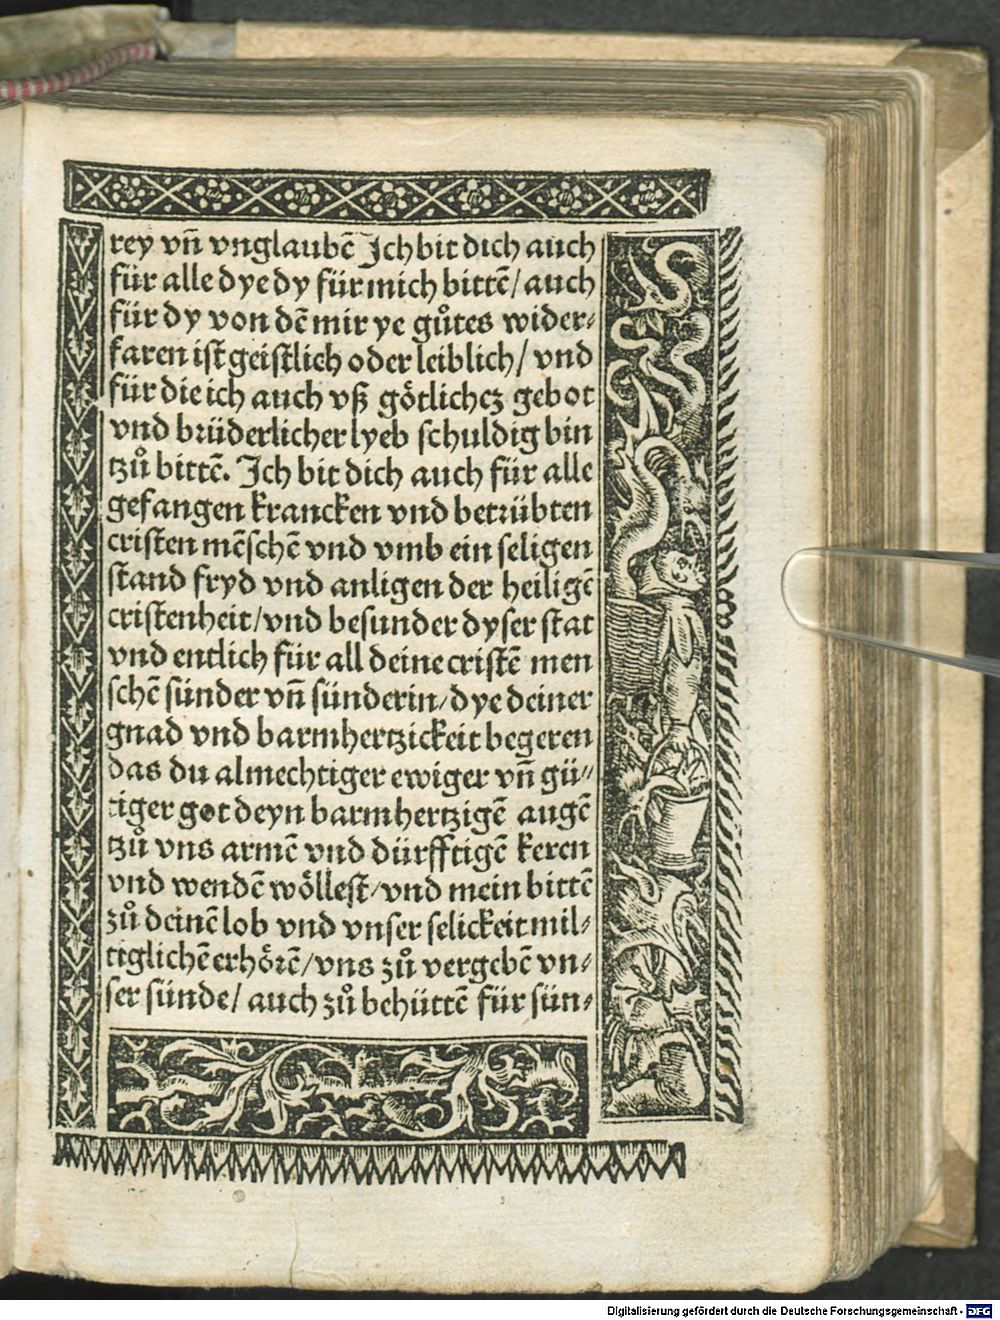 rey vn̄ vnglaubē Ich bit dich auch
für alle dye dy für mich bittē/ auch
für dy von dē mir ye gůtes wider⸗
faren ist geistlich oder leiblich/ vnd
für die ich auch vß götlichcz gebot
vnd brüderlicher lyeb schuldig bin
tzů bittē. Ich bit dich auch für alle
gefangen krancken vnd betrübten
cristen mēschē vnd vmb ein seligen
stand fryd vnd anligen der heiligē
cristenheit/ vnd besunder dyser stat
vnd entlich für all deine cristē men
schē sünder vn̄ sünderin/ dye deiner
gnad vnd barmhertzickeit begeren
das du almechtiger ewiger vn̄ gü⸗
tiger got deyn barmhertzigē augē
tzů vns armē vnd dürfftigē keren
vnd wendē wöllest/ vnd mein bittē
zů deinē lob vnd vnser selickeit mil⸗
tiglichē erhörē/ vns zů vergebē vn⸗
ser sünde/ auch zů behüttē für sün⸗
Digitalisierung gefördert durch die Deutsche Forschungsgemeinschaft - DFG